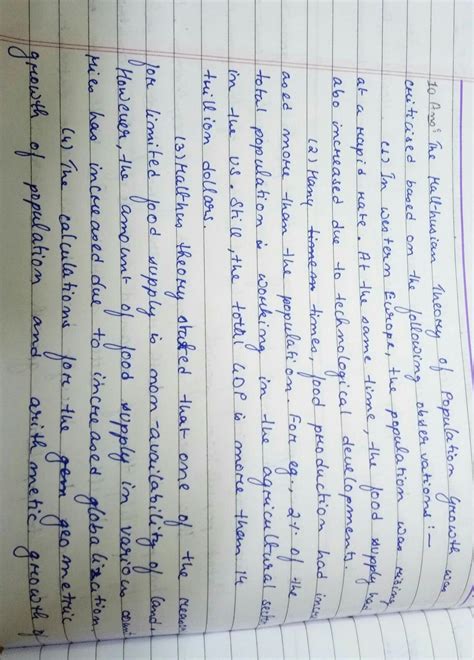 10 Ans: The Malthusian Theory of Population Growth was
criticised based on the following observations:-
(1) In western Europe, the population was rising
at a rapid rate. At the same time, the food supply had
also increased due to technological developments.
(2) Many times, food production had
ased more than the population. For eg., 2% of the
total population is working in the agricultural
in the US. Still, the total GDP is more than 14
trillion dollars.
(3) Malthus theory stated that one of the
for limited food supply is non-availability of land.
However, the amount of food supply in various
ries has increased due to increased globalization
(4) The calculations for the geometric
growth of population and arithmetic growth